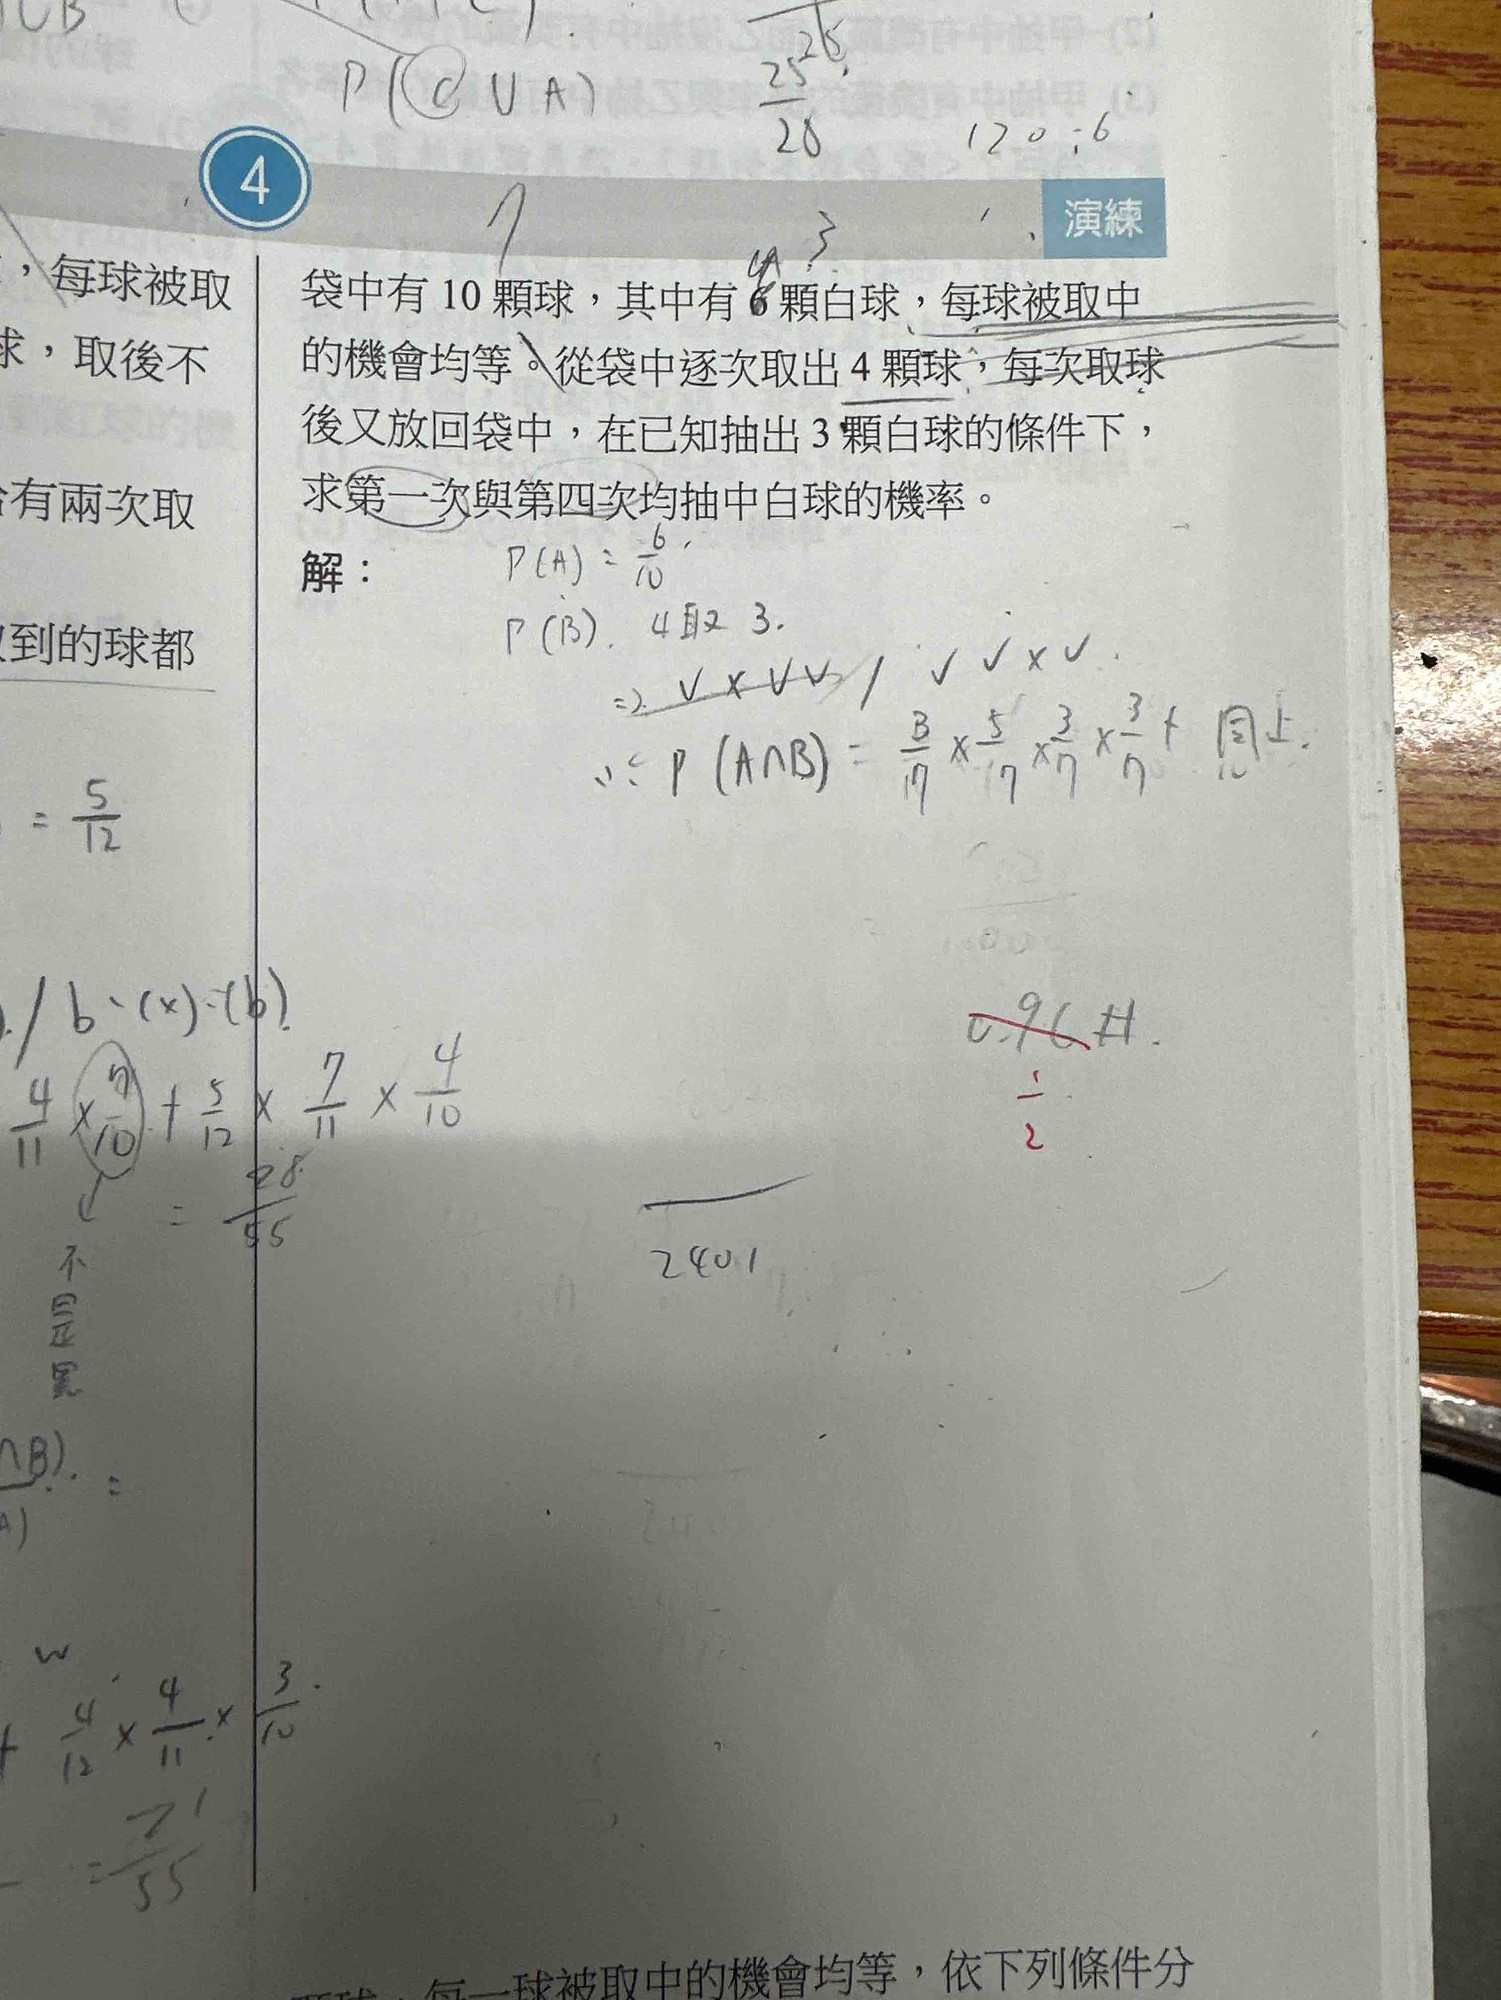 P(C∪A)
25
28
120÷6
4
7
3
演練
，每球被取
球，取後不
有兩次取
到的球都
袋中有 10 顆球，其中有 6 顆白球，每球被取中
的機會均等。從袋中逐次取出 4 顆球，每次取球
後又放回袋中，在已知抽出 3 顆白球的條件下，
求第一次與第四次均抽中白球的機率。
解：
P(A) = 6/10
P(B). 4取 3.
⇒ ✓ × ✓ ✓ / ✓ ✓ × ✓
P(A∩B) = 3/7 × 5/7 × 3/7 × 3/7 + 同上.
= 5/12
/ b、(x)、(b)
4/11 × 7/10 + 5/12 × 7/11 × 4/10
= 28/55
不
是
黑
0.96#.
1/2
2401
∩B)
A)
=
w
+ 4/12 × 4/11 × 3/10
= 7/55
，每一球被取中的機會均等，依下列條件分